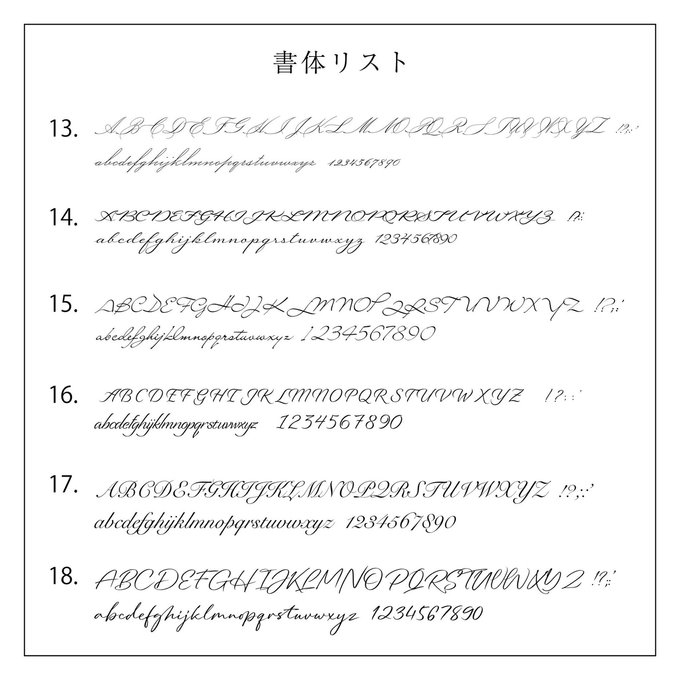 書体リスト
13. ABCDEFGHIJKLMNOPQRSTUVWXYZ !?;:'
abcdefghijklmnopqrstuvwxyz 1234567890
14. ABCDEFGHIJKLMNOPQRSTUVWXYZ !?;:
abcdefghijklmnopqrstuvwxyz 1234567890
15. ABCDEFGHIJKLMNOPQRSTUVWXYZ !?;:'
abcdefghijklmnopqrstuvwxyz 1234567890
16. ABCDEFGHIJKLMNOPQRSTUVWXYZ !?;:'
abcdefghijklmnopqrstuvwxyz 1234567890
17. ABCDEFGHIJKLMNOPQRSTUVWXYZ !?;:'
abcdefghijklmnopqrstuvwxyz 1234567890
18. ABCDEFGHIJKLMNOPQRSTUVWXYZ !?;:'
abcdefghijklmnopqrstuvwxyz 1234567890